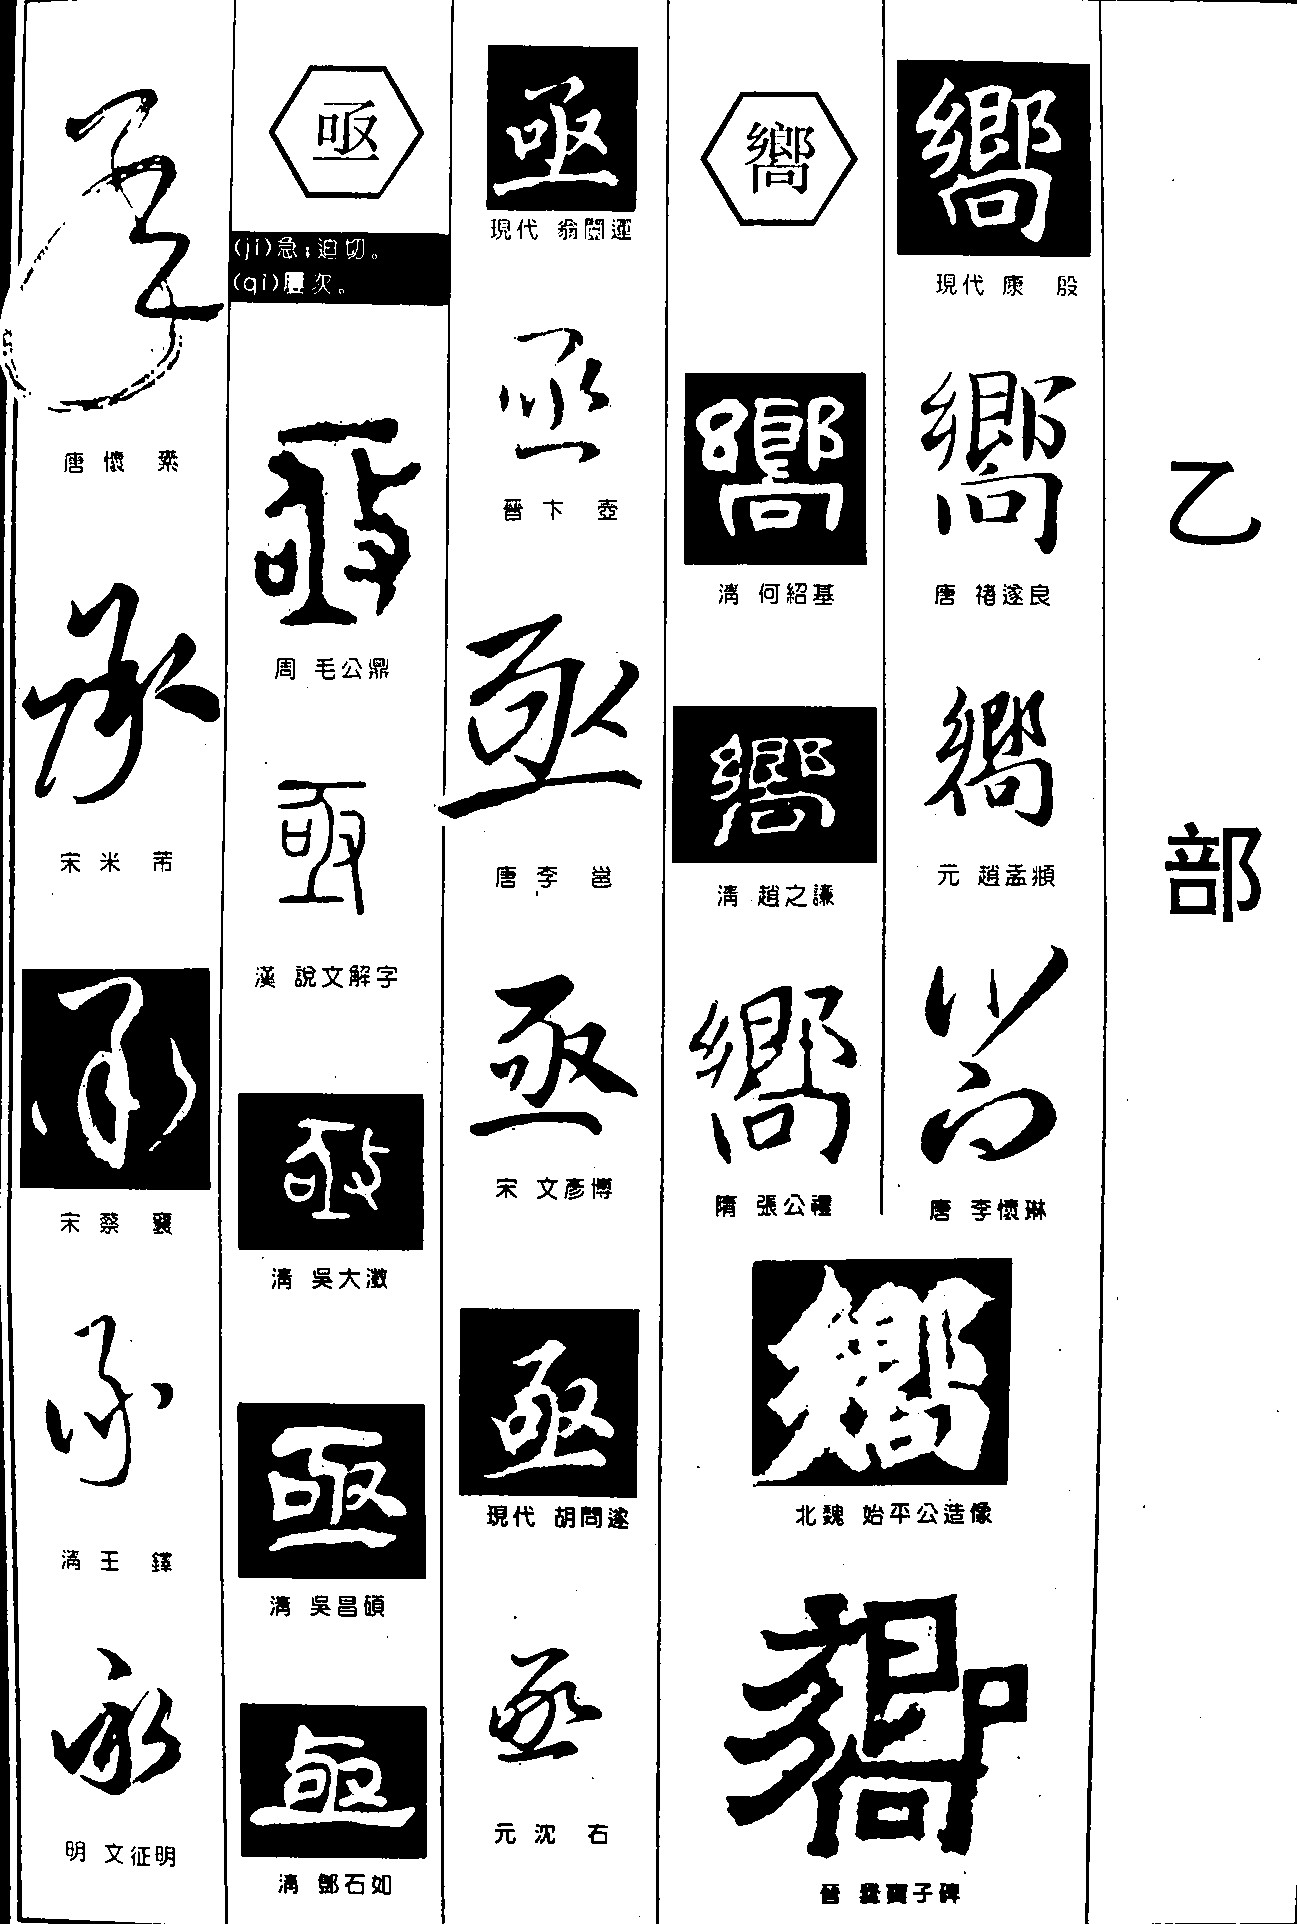 乙部
嚮
現代 康 殷
唐 褚遂良
元 趙孟頫
唐 李懷琳
清 何紹基
清 趙之謙
隋 張公禮
北魏 始平公造像
晉 爨寶子碑
亟
(jí)急；迫切。
(qì)屢次。
周 毛公鼎
漢 說文解字
清 吳大澂
清 吳昌碩
清 鄧石如
現代 翁闓運
晉 卞 壺
唐 李 邕
宋 文彥博
現代 胡問遂
元 沈 右
唐 懷 素
宋 米 芾
宋 蔡 襄
清 王 鐸
明 文征明